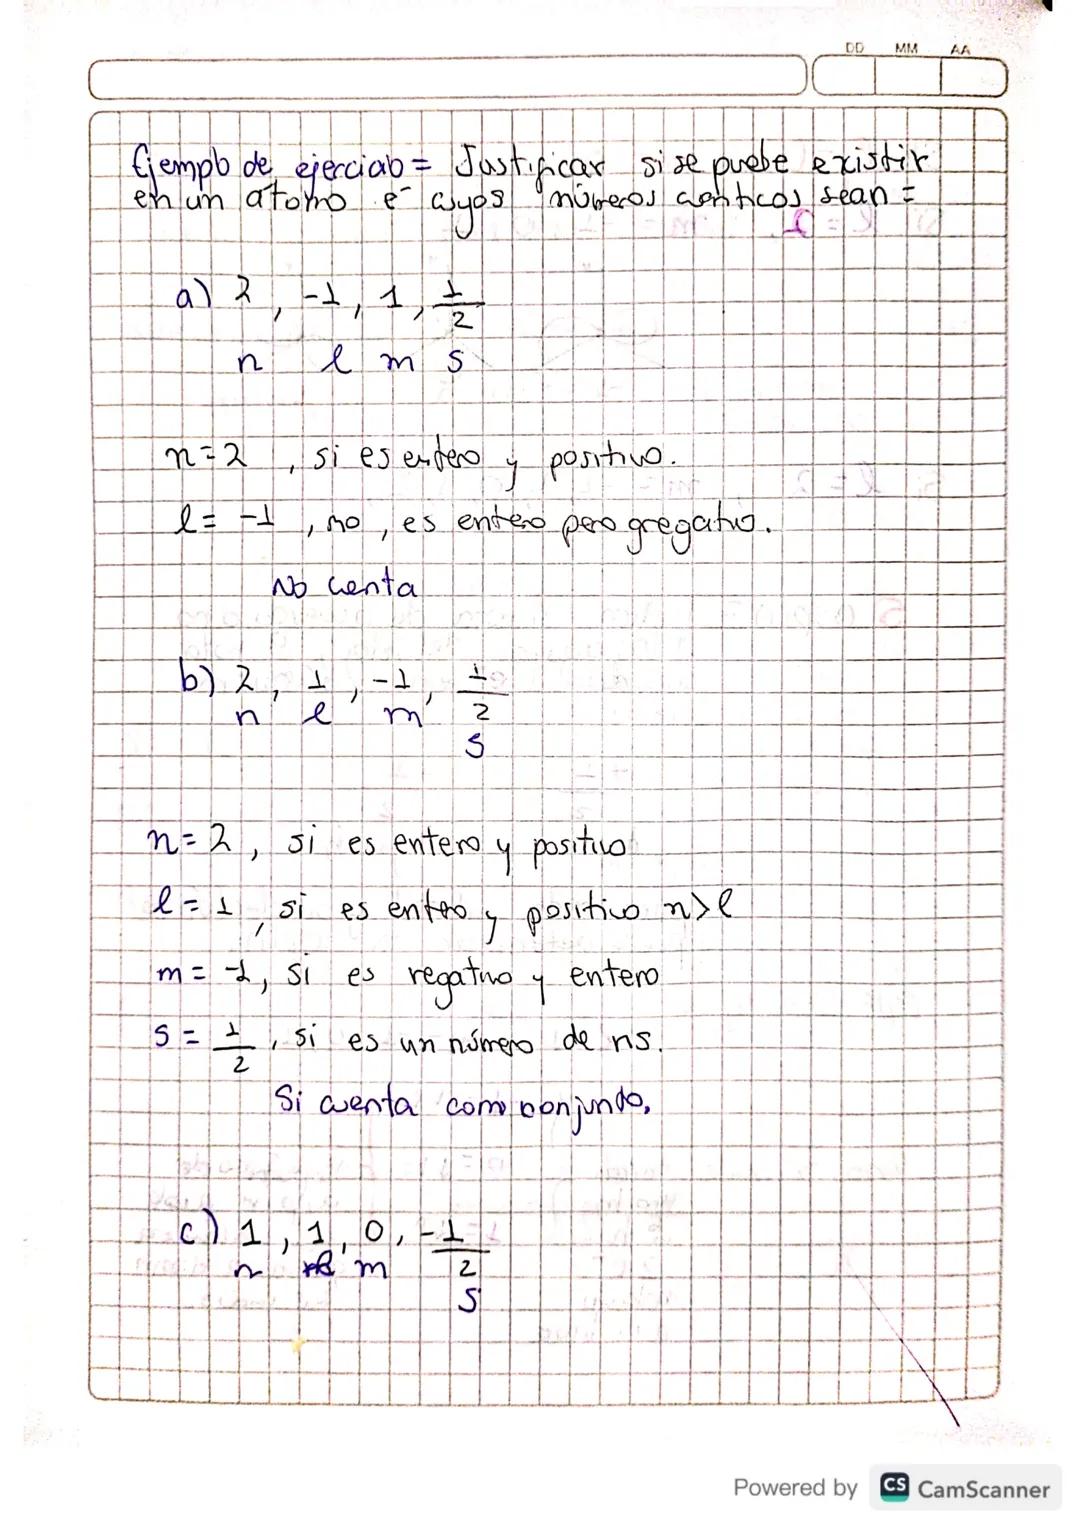 DD MM AA
Ejemplo de ejercicio = Justificar si se puede existir
en un átomo e⁻ cuyos números cuánticos sean =
a) 2, -1, 1, 1/2
n l m s
n=2, si es entero y positivo.
l= -1, no, es entero pero negativo.
No cuenta
b) 2, 1, -1, 1/2
n l m s
n=2, si es entero y positivo
l=1, si es entero y positivo n>l
m= -1, si es negativo y entero
s= 1/2, si es un número de ns.
Si cuenta como conjunto.
c) 1, 1, 0, -1/2
n l m s
Powered by CS CamScanner